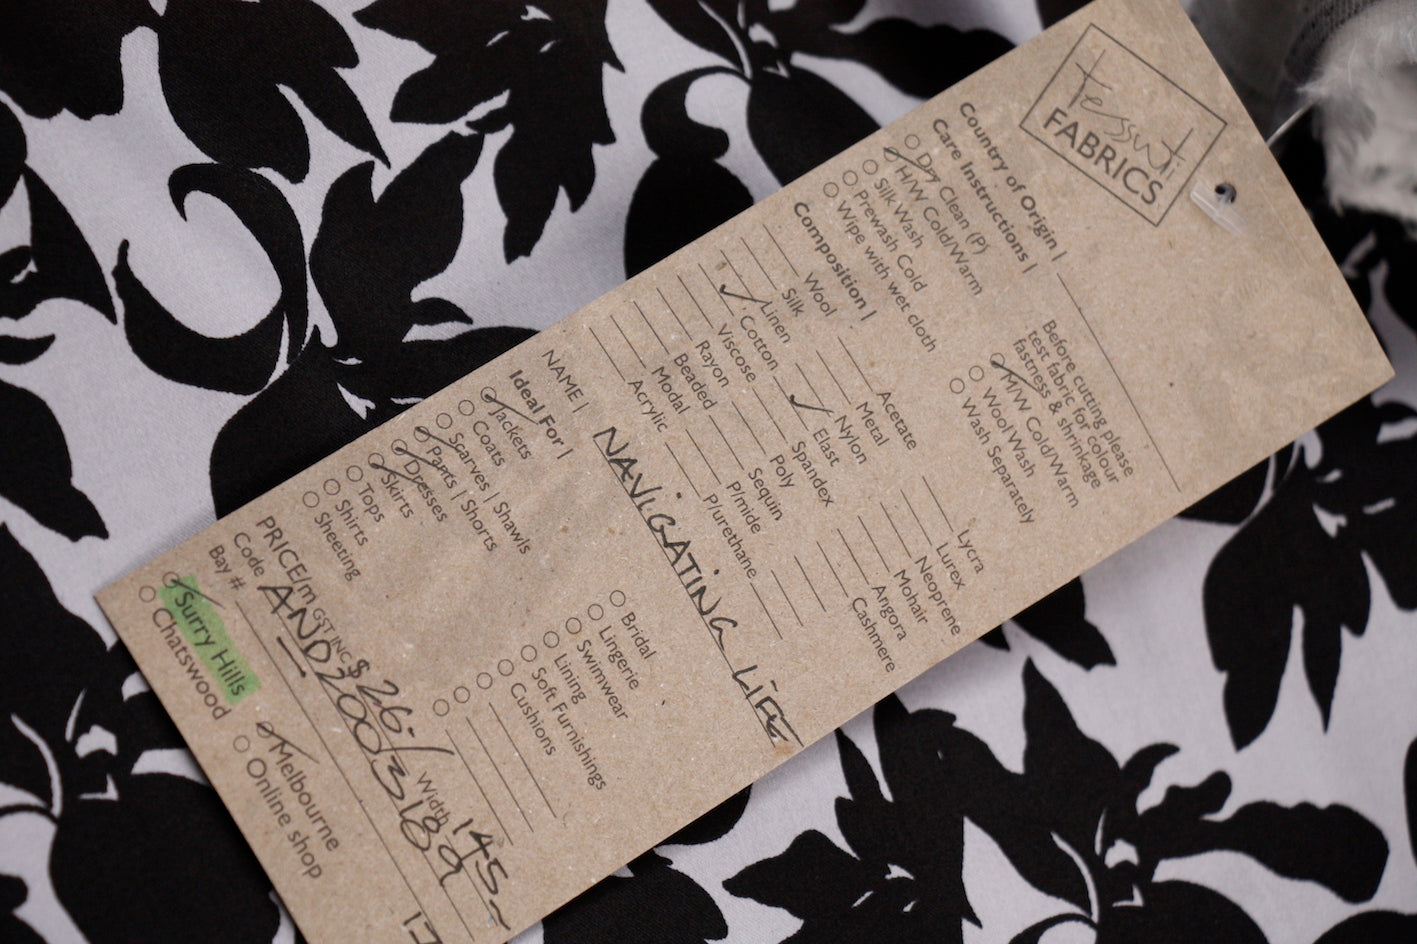 Tessuti
FABRICS
Country of Origin |
Care Instructions |
Dry Clean (P)
H/W Cold/Warm
Silk Wash
Prewash Cold
Wipe with wet cloth
Before cutting please
test fabric for colour
fastness & shrinkage
M/W Cold/Warm
Wool Wash
Wash Separately
Composition |
Wool
Silk
Linen
Cotton
Viscose
Rayon
Beaded
Modal
Acrylic
Acetate
Metal
Nylon
Elast
Spandex
Poly
Sequin
P/mide
P/urethane
Lycra
Lurex
Neoprene
Mohair
Angora
Cashmere
NAME | NAVIGATING LIFE
Ideal For |
Jackets
Coats
Scarves | Shawls
Pants | Shorts
Dresses
Skirts
Tops
Shirts
Sheeting
Bridal
Lingerie
Swimwear
Lining
Soft Furnishings
Cushions
PRICE/m GST INC $ 26./ Width 145
Code AND200318
Bay # 17
Surry Hills
Chatswood
Melbourne
Online shop